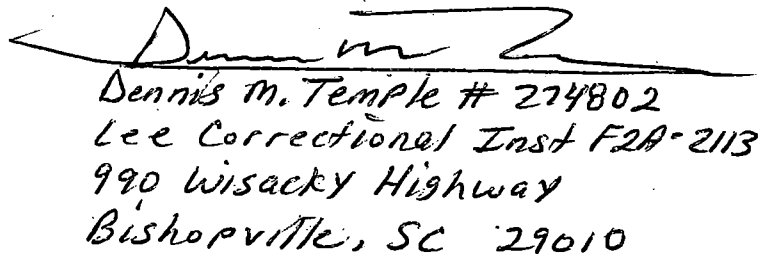 Dennis M. Temple # 274802
Lee Correctional Inst F2A-2113
990 Wisacky Highway
Bishopville, SC 29010